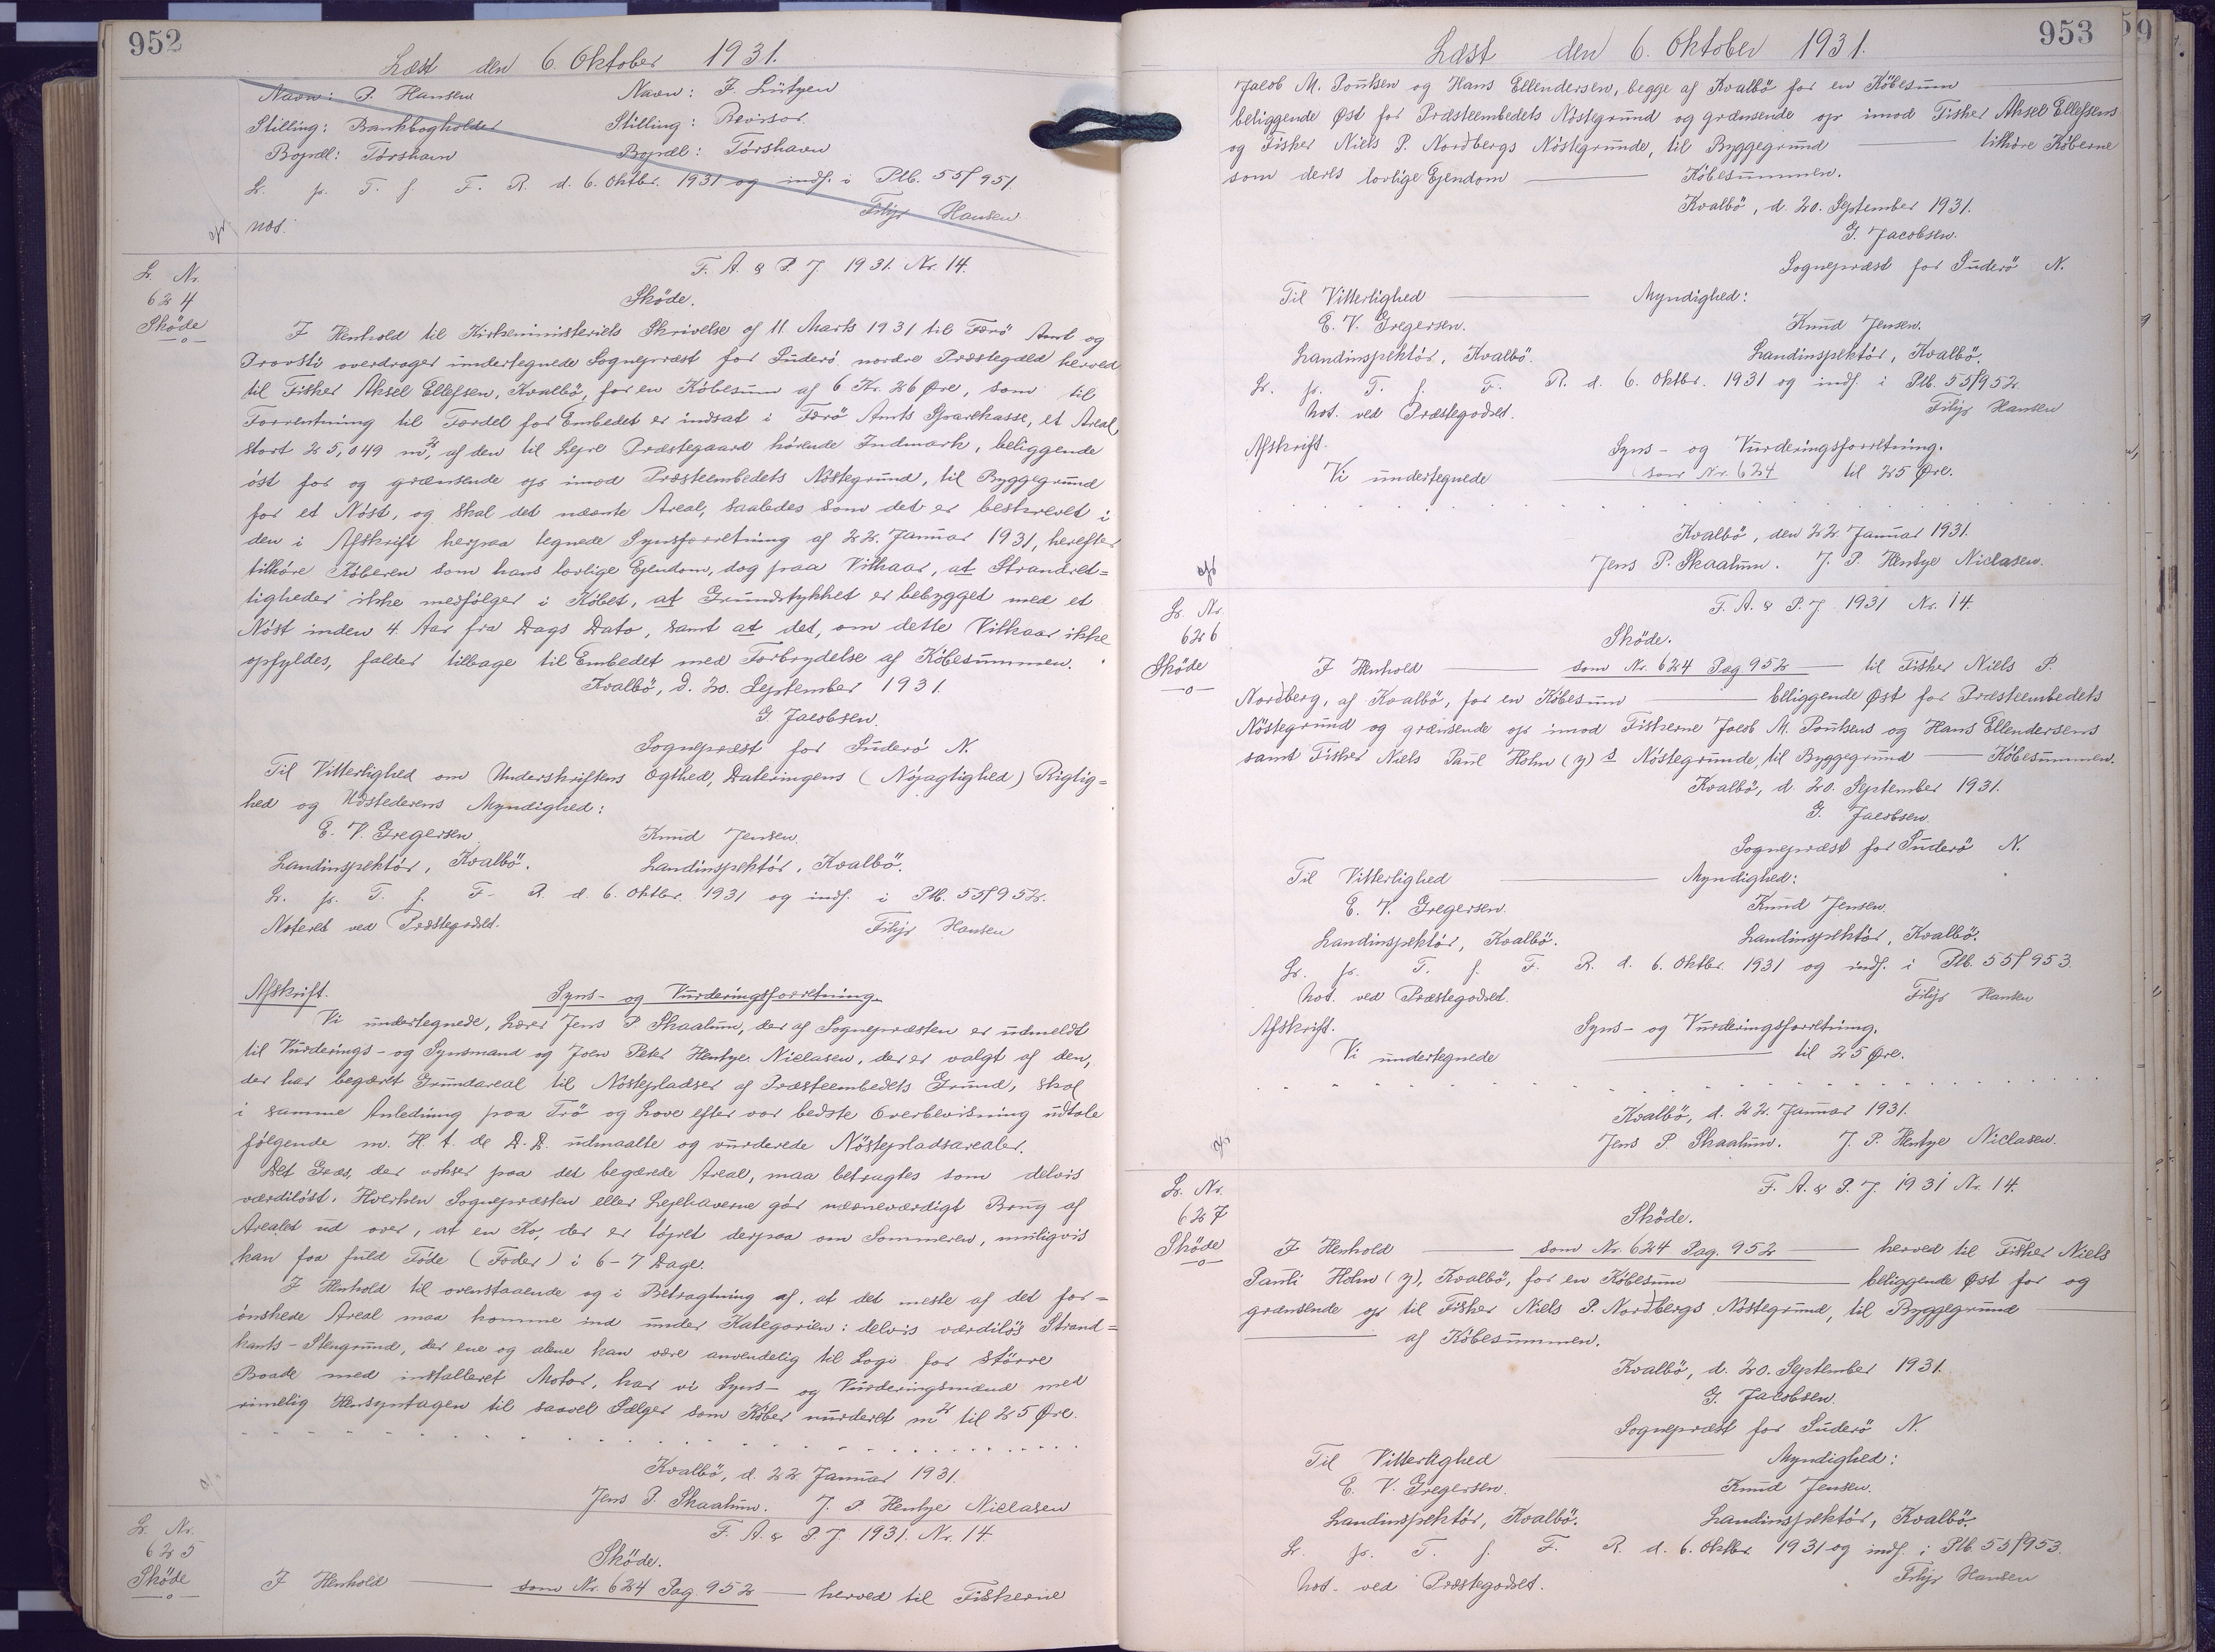 952
Læst den 6. Oktober 1931.
Navn: P. Hansen Navn: J. Lützen
Stilling: Bankbogholder Stilling: Revisor.
Bopæl: Tórshavn Bopæl: Tórshavn
L. p. T. f. F. R. d. 6. Oktbr. 1931 og indf. i Ptb. 55/951
Filip Hansen
not.
F. A. & P. J 1931. Nr. 14.
L. Nr.
624
Sköde
Sköde.
I Henhold til Kirkeministeriets Skrivelse af 11. Marts 1931 til Færö Amt og
Provsti overdrager undertegnede Sognepræst for Suderö nordre Præstegæld herved
til Fisker Aksel Ellefsen, Kvalbö, for en Köbesum af 6 Kr. 26 Øre, som til
Forrentning til Fordel for Embedet er indsat i Færö Amts Sparekasse, et Areal,
stort 25,049 m², af den til Lejre Præstegaard hörende Indmark, beliggende
öst for og grænsende op imod Præsteembedets Nöstegrund, til Byggegrund
for et Nöst, og skal det nævnte Areal, saaledes som det er beskrevet i
den i Afskrift herpaa tegnede Synsforretning af 22. Januar 1931, herefter
tilhöre Köberen som hans lovlige Ejendom, dog paa Vilkaar, at Strandret=
tigheder ikke medfölger i Köbet, at Grundstykket er bebygget med et
Nöst inden 4 Aar fra Dags Dato, samt at det, om dette Vilkaar ikke
opfyldes, falder tilbage til Embedet med Forbrydelse af Köbesummen.
Kvalbö, d. 20. September 1931.
G. Jacobsen.
Sognepræst for Suderö N.
Til Vitterlighed om Underskriftens Ægthed, Dateringens (Nöjagtighed) Rigtig=
hed og Udstederens Myndighed:
E. V. Gregersen Knud Jensen
Landinspektör, Kvalbö. Landinspektör, Kvalbö.
L. p. T. f. F. R. d. 6. Oktbr. 1931 og indf. i Ptb. 55/952.
Noteret ved Præstegodset. Filip Hansen
Afskrift. Syns- og Vurderingsforretning.
Vi undertegnede, Lærer Jens P. Skaalum, der af Sognepræsten er udmeldt
til Vurderings- og Synsmand og Joen Peter Hentye Niclasen, der er valgt af den,
der har begæret Grundareal til Nöstepladser af Præsteembedets Grund, skal
i samme Anledning paa Tro og Love efter vor bedste Overbevisning udtale
fölgende m. H. t. de D. D. udmaalte og vurderede Nöstepladsarealer.
Det Græs, der vokser paa det begærede Areal, maa betragtes som delvis
værdilöst. Hverken Sognepræsten eller Lejehaverne gör nævneværdigt Brug af
Arealet ud over, at en Ko, der er töjret derpaa om Sommeren, muligvis
kan faa fuld Föde (Foder) i 6-7 Dage.
I Henhold til ovenstaaende og i Betragtning af, at det meste af det for=
önskede Areal maa komme ind under Kategorien: delvis værdilös Strand=
kants-Stengrund, der ene og alene kan være anvendelig til Logi for större
Baade med installeret Motor, har vi Syns- og Vurderingsmænd med
rimelig Hensyntagen til saavel Sælger som Köber vurderet m² til 25 Øre.
Kvalbö, d. 22 Januar 1931.
Jens P. Skaalum. J. P. Hentye Niclasen
F. A. & P J 1931. Nr. 14.
L. Nr.
625
Sköde
Sköde.
I Henhold som Nr. 624 Pag. 952 herved til Fiskerne
953
Læst den 6. Oktober 1931.
Jacob M. Poulsen og Hans Ellendersen, begge af Kvalbö for en Köbesum
beliggende Øst for Præsteembedets Nöstegrund og grænsende op imod Fisker Aksel Ellefsens
og Fisker Niels P. Nordbergs Nöstegrunde, til Byggegrund tilhöre Köberne
som deres lovlige Ejendom Köbesummen.
Kvalbö, d. 20. September 1931.
G. Jacobsen.
Sognepræst for Suderö N.
Til Vitterlighed Myndighed:
E. V. Gregersen. Knud Jensen.
Landinspektör, Kvalbö. Landinspektör, Kvalbö.
L. p. T. f. F. R. d. 6. Oktbr. 1931 og indf. i Ptb. 55/952.
Not. ved Præstegodset. Filip Hansen
Afskrift. Syns- og Vurderingsforretning.
Vi undertegnede som Nr. 624 til 25 Øre.
Kvalbö, den 22 Januar 1931.
Jens P. Skaalum. J. P. Hentye Niclasen.
F. A. & P. J 1931 Nr. 14.
L. Nr.
626
Sköde
Sköde.
I Henhold som Nr. 624 Pag 952 til Fisker Niels P.
Nordberg, af Kvalbö, for en Köbesum beliggende Øst for Præsteembedets
Nöstegrund og grænsende op imod Fiskerne Jacob M. Poulsens og Hans Ellendersens
samt Fisker Niels Paul Holm (y) s Nöstegrunde, til Byggegrund Köbesummen.
Kvalbö, d. 20. September 1931.
G. Jacobsen.
Sognepræst for Suderö N.
Til Vitterlighed Myndighed:
E. V. Gregersen. Knud Jensen.
Landinspektör, Kvalbö. Landinspektör, Kvalbö.
L. p. T. f. F. R. d. 6. Oktbr. 1931 og indf. i Ptb. 55/953.
Not. ved Præstegodset. Filip Hansen
Afskrift. Syns- og Vurderingsforretning.
Vi undertegnede til 25 Øre.
Kvalbö, d. 22. Januar 1931.
Jens P. Skaalum. J. P. Hentye Niclasen.
F. A. & P. J. 1931 Nr. 14.
L. Nr.
627
Sköde
Sköde.
I Henhold som Nr. 624 Pag. 952 herved til Fisker Niels
Pauli Holm (y), Kvalbö, for en Köbesum beliggende Øst for og
grænsende op til Fisker Niels P. Nordbergs Nöstegrund, til Byggegrund
af Köbesummen.
Kvalbö, d. 20. September 1931.
G. Jacobsen.
Sognepræst for Suderö N.
Til Vitterlighed Myndighed:
E. V. Gregersen. Knud Jensen.
Landinspektör, Kvalbö. Landinspektör, Kvalbö.
L. p. T. f. F. R. d. 6. Oktbr. 1931 og indf. i Ptb. 55/953.
Not. ved Præstegodset. Filip Hansen